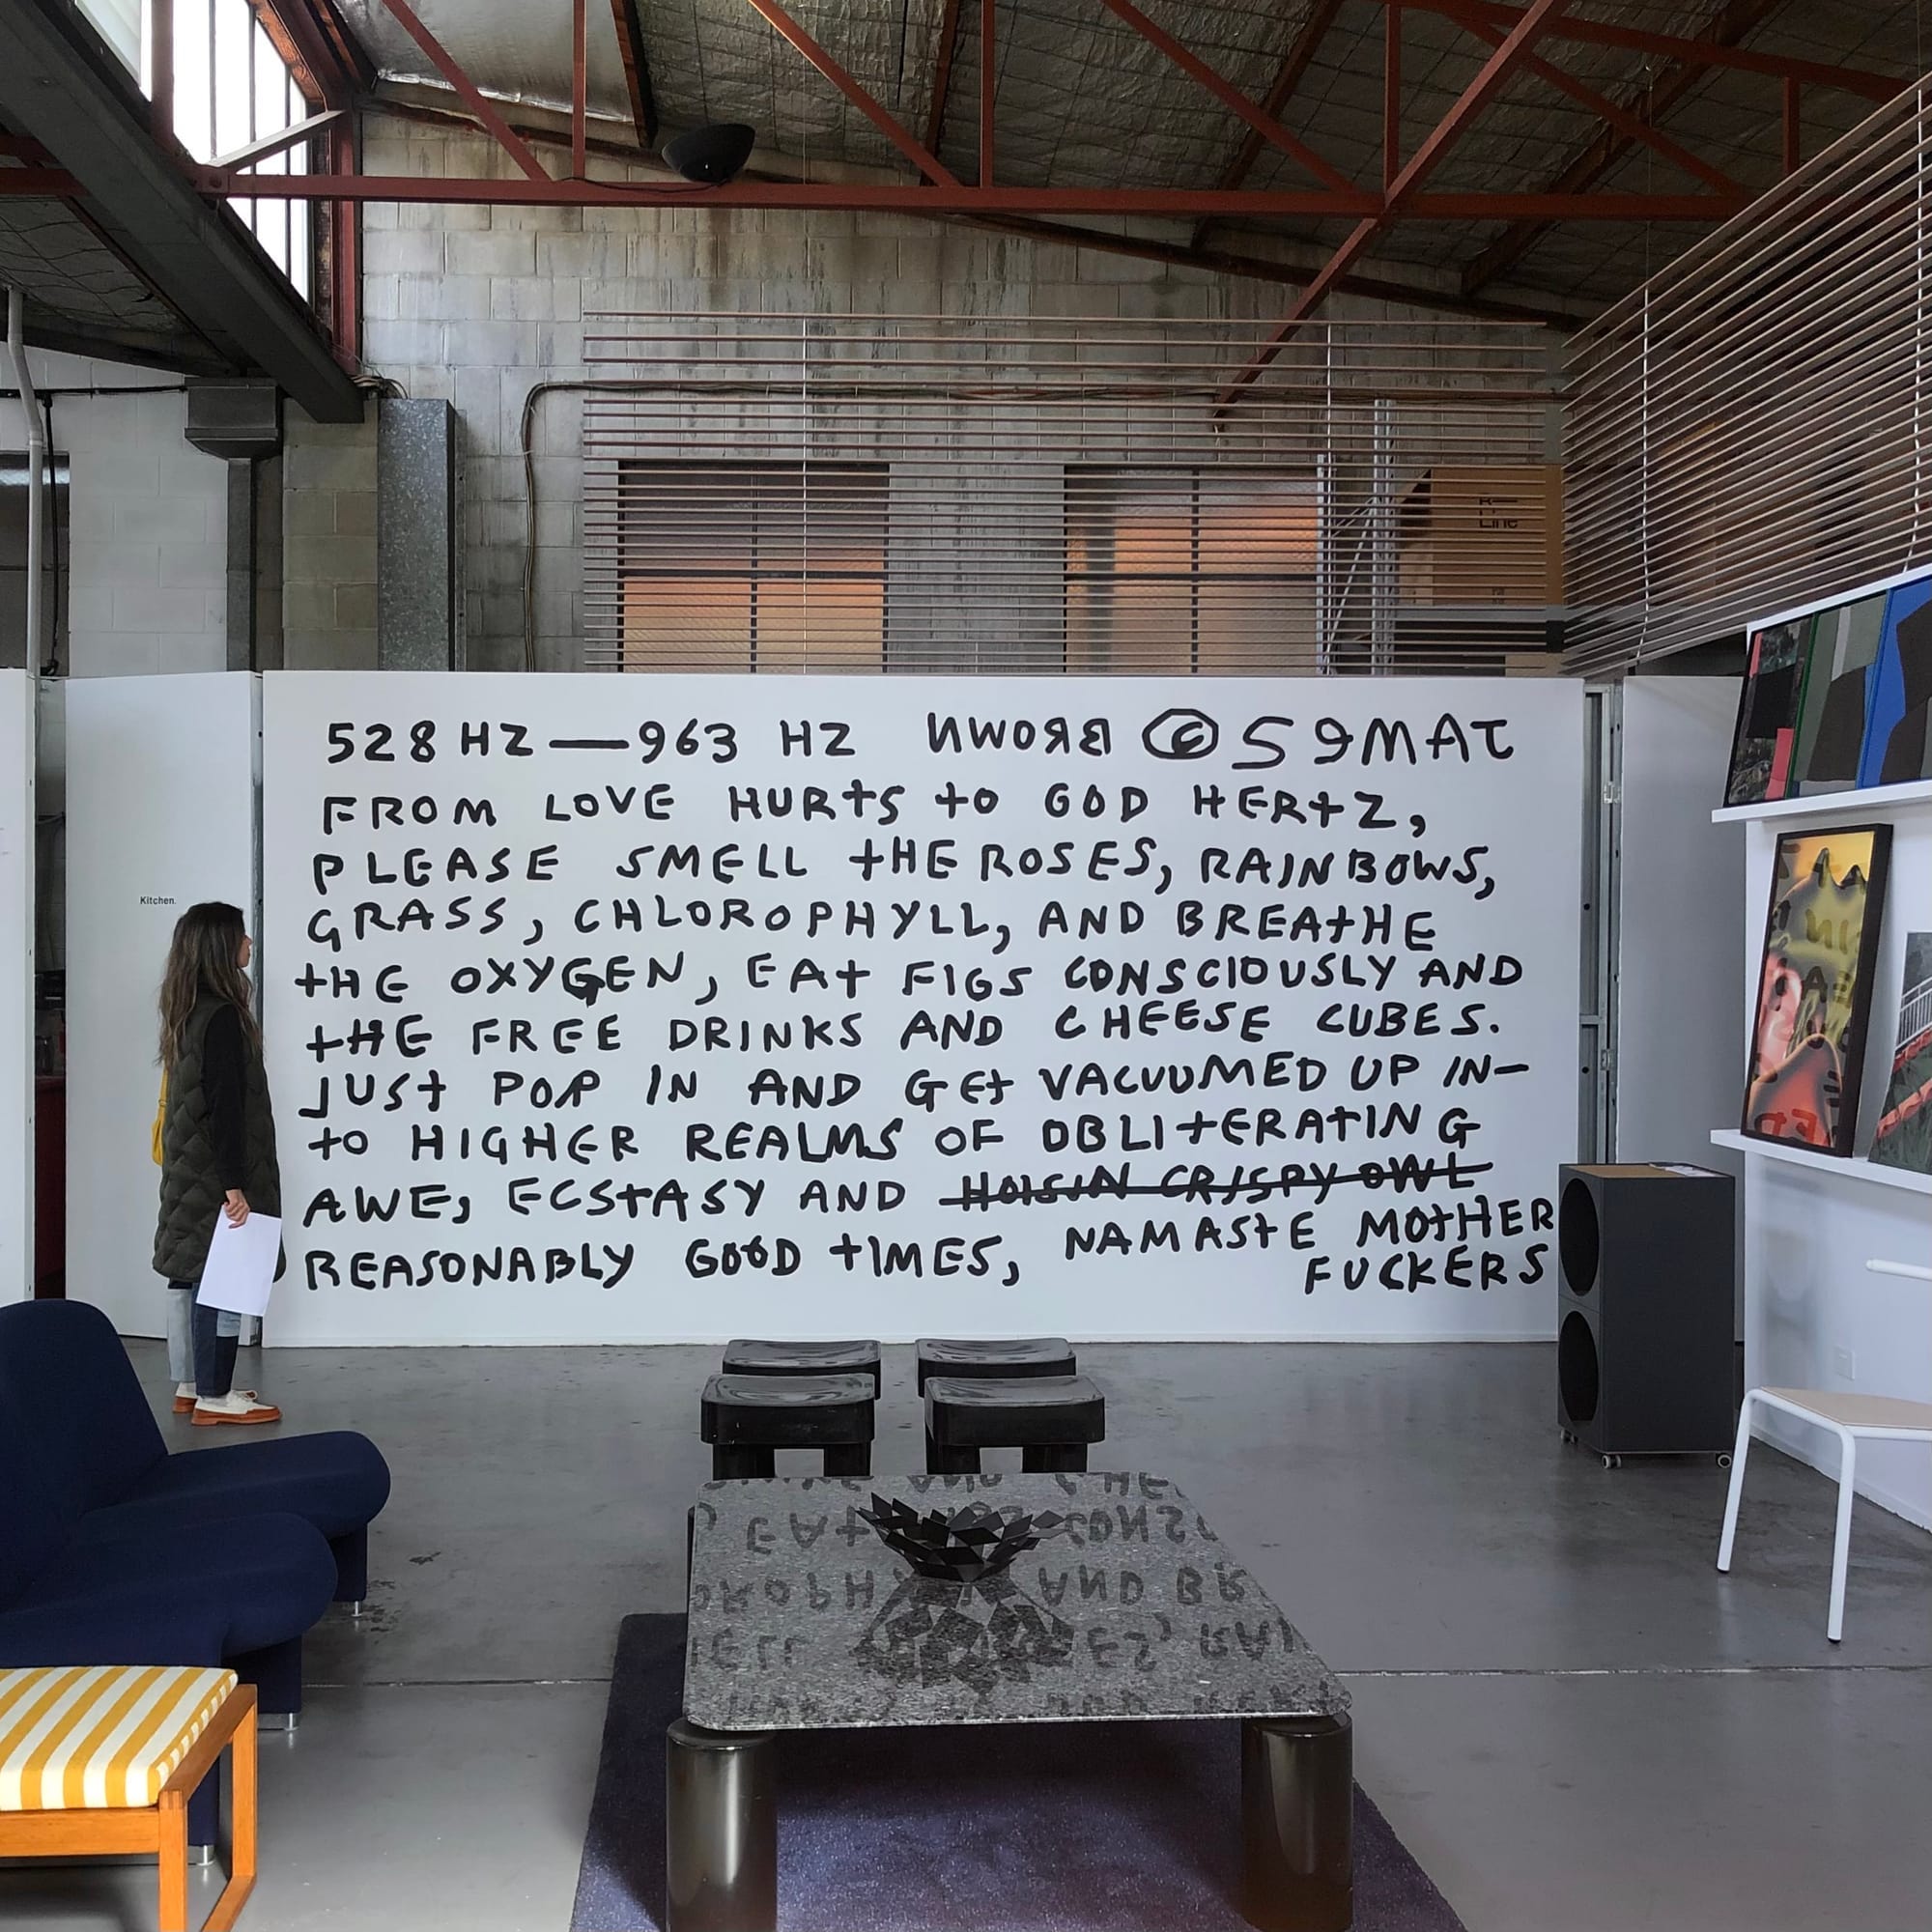 528 HZ — 963 HZ BROWN © JAMES
FROM LOVE HURTS TO GOD HERTZ,
PLEASE SMELL THE ROSES, RAINBOWS,
GRASS, CHLOROPHYLL, AND BREATHE
THE OXYGEN, EAT FIGS CONSCIOUSLY AND
THE FREE DRINKS AND CHEESE CUBES.
JUST POP IN AND GET VACUUMED UP IN-
TO HIGHER REALMS OF OBLITERATING
AWE, ECSTASY AND HOISIN CRISPY OWL
REASONABLY GOOD TIMES, NAMASTE MOTHER
FUCKERS
Kitchen.